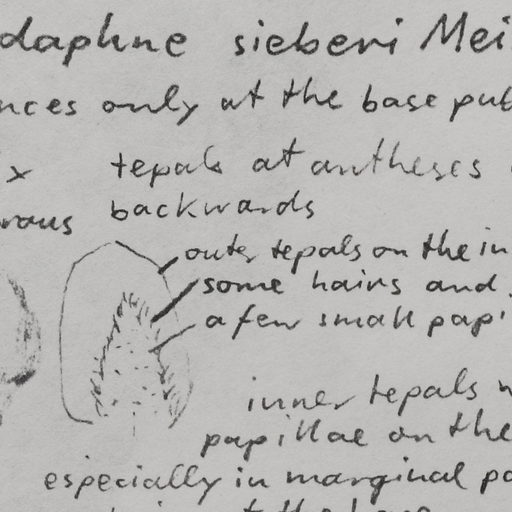 daphne sieberi Mei
nces only at the base pub
x tepals at antheses
raus backwards
outer tepals on the in
some hairs and
a few small papi
inner tepals
papillae on the
especially in marginal pa